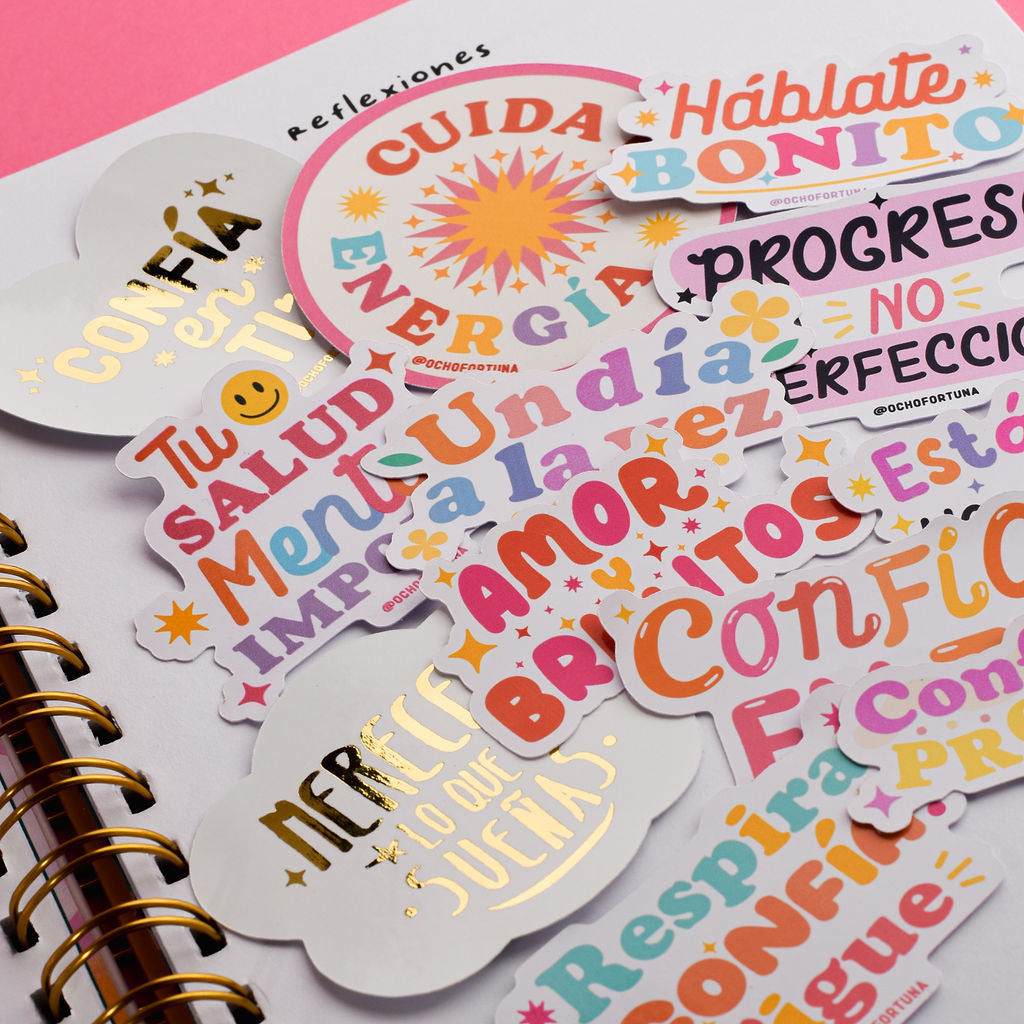 reflexiones
CUIDA
ENERGÍA
@OCHOFORTUNA
Háblate
BONITO
@OCHOFORTUNA
CONFÍA
en
TI
PROGRES
NO
ERFECCIO
@OCHOFORTUNA
Tu
SALUD
Ment
IMPO
@OCHO
Un día
a la vez
AMOR
Y
BRI ITOS
Está
CONFÍO
Conf
PRO
MERECE
LO QUE
SUEÑAS.
Respira
CONFÍA
igue
FORTUNA